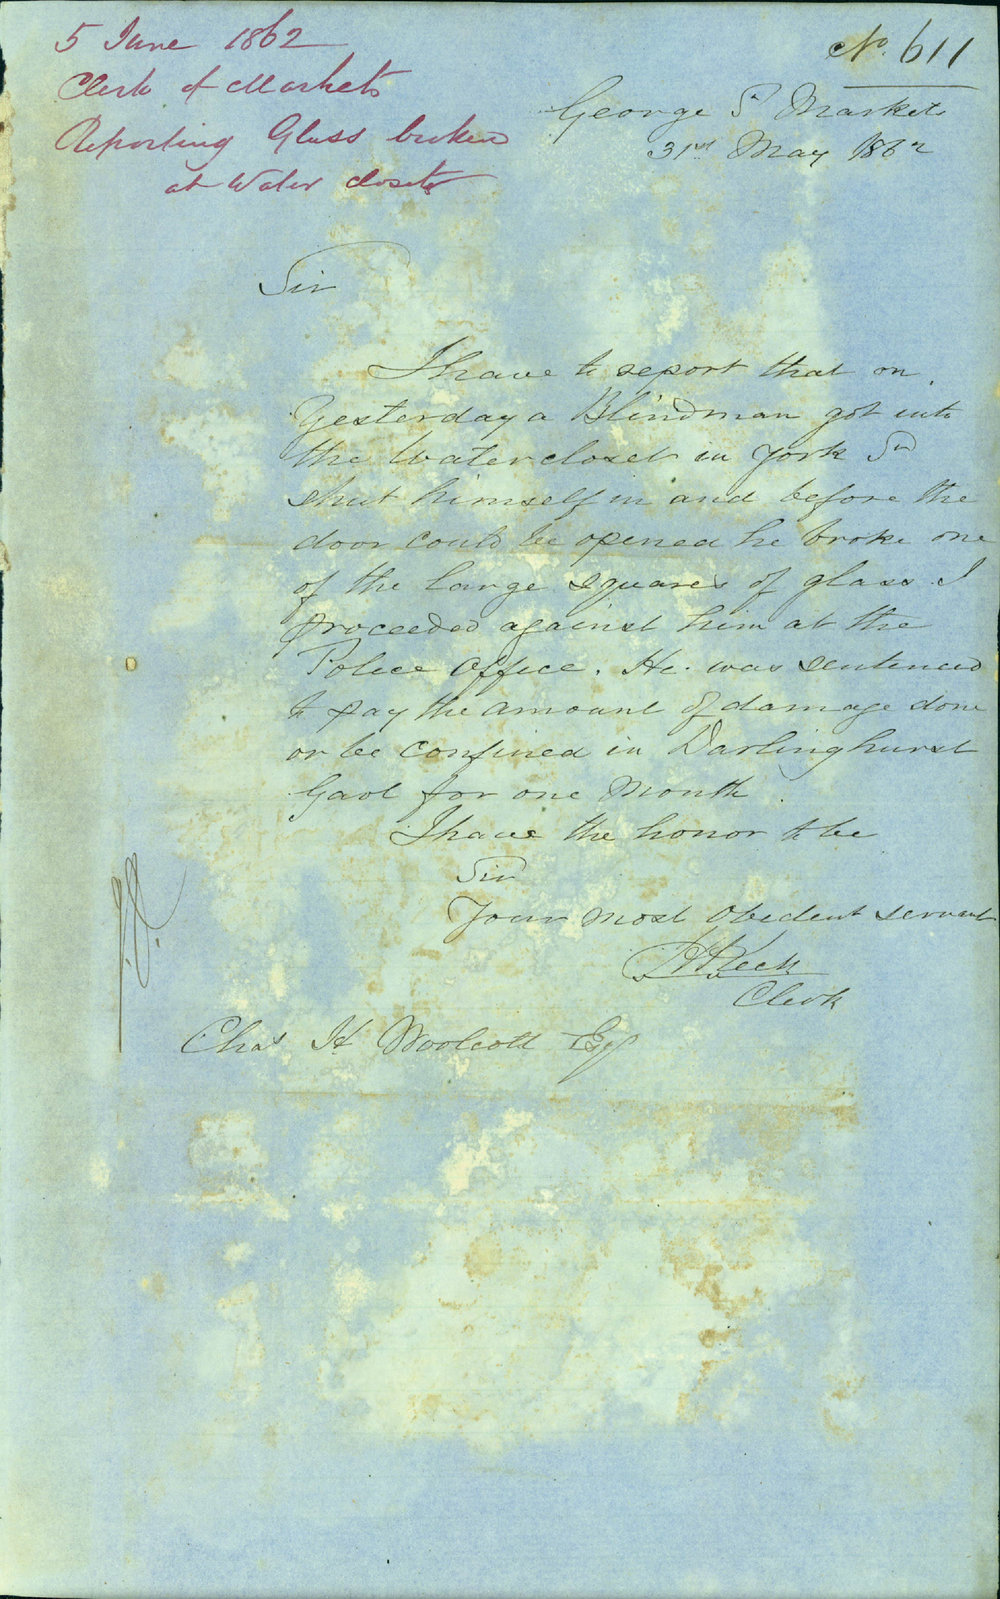 5 June 1862
Clerk of Markets
Reporting Glass broken
at Water closets
No. 611
George St Markets
31st May 1862
Sir
I have to report that on
Yesterday a Blindman got into
the Watercloset in York St
shut himself in and before the
door could be opened he broke one
of the large squares of glass. I
proceeded against him at the
Police Office. He was sentenced
to pay the amount of damage done
or be confined in Darlinghurst
Gaol for one Month.
I have the honor to be
Sir
Your most obedient servant
Keck
Clerk
Chas H Woolcott Esq